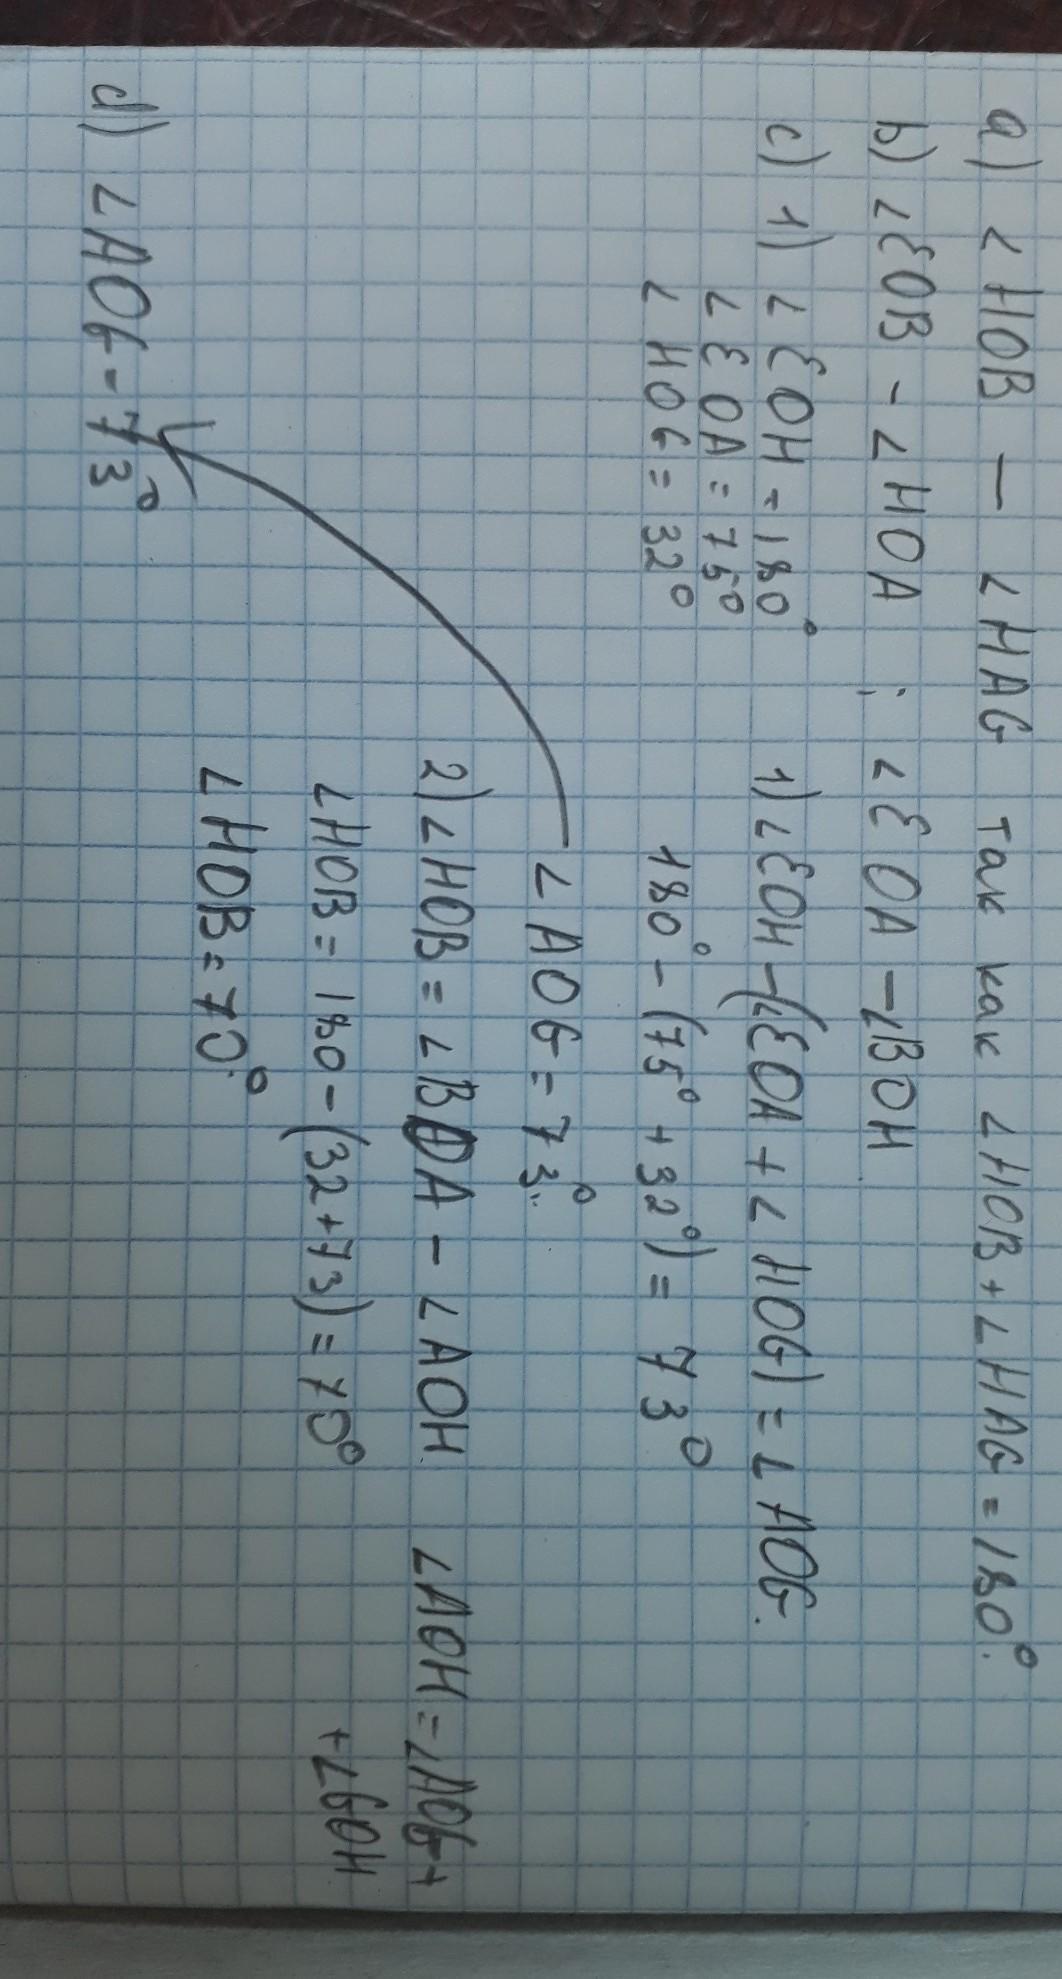 a) ∠HOB — ∠HAG так как ∠HOB + ∠HAG = 180°.
b) ∠EOB - ∠HOA ; ∠EOA - ∠BOH
c) 1) ∠EOH - 180°
∠EOA = 75°
∠HOG = 32°
1) ∠EOH - (∠EOA + ∠HOG) = ∠AOG.
180° - (75° + 32°) = 73°
∠AOG = 73°
2) ∠HOB = ∠BOA - ∠AOH ∠AOH = ∠AOG +
+ ∠GOH
∠HOB = 180 - (32 + 73) = 70°
∠HOB = 70°
d) ∠AOG - 73°